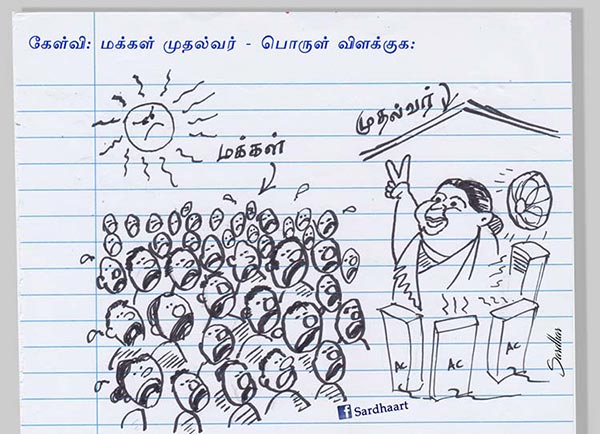 கேள்வி: மக்கள் முதல்வர் - பொருள் விளக்குக:
மக்கள்
முதல்வர்
AC
AC
AC
Sardhaart